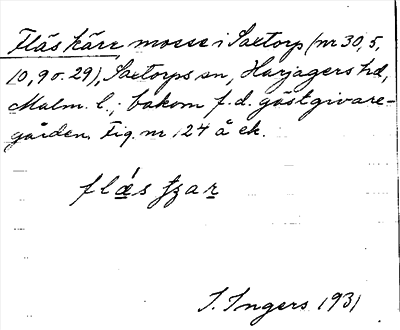 Fläskärr mosse i Saxtorp (nr 30, 5,
10, 9 o. 29), Saxtorps sn, Harjagers hd,
Malm. l.; bakom f. d. gästgivare-
gården. Fig. nr 124 å ek.
I. Ingers 1931